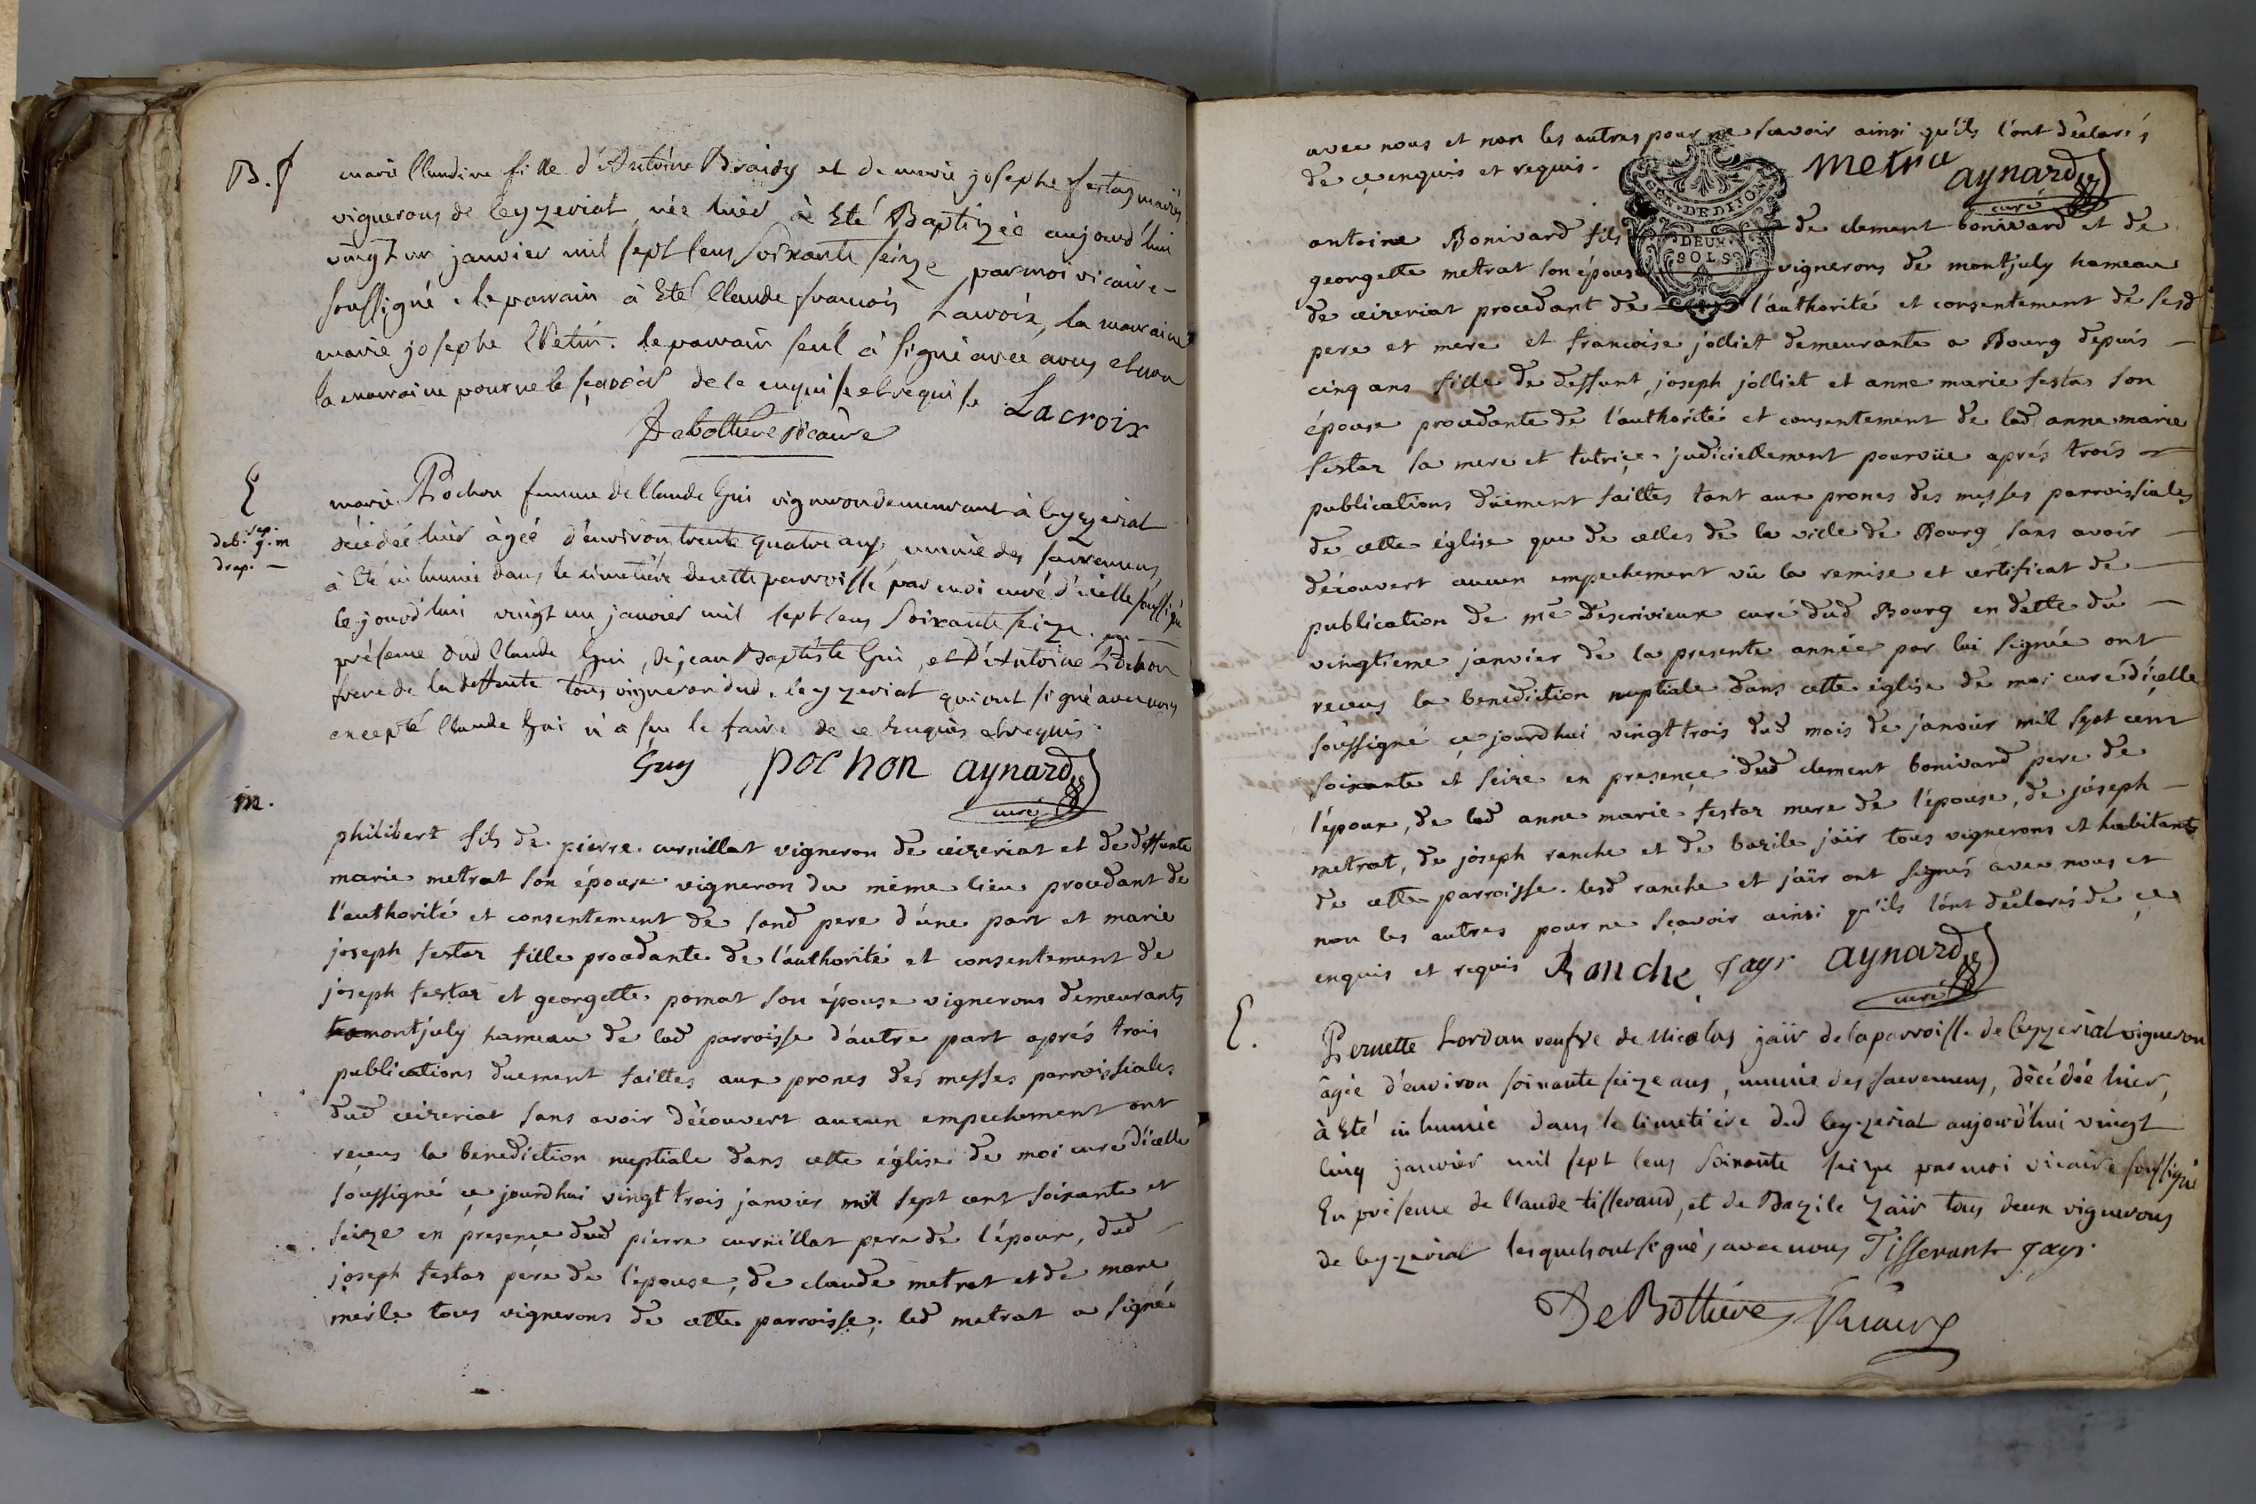 B. f
marie Claudine fille d'Antoine Braidy et de marie josephe festaz mariés
vignerons de Ceyzeriat, née hier à Eté Baptizée aujourd'hui
vingt un janvier mil sept Cens soixante seize par moi vicaire
soussigné. le parrain à Eté Claude françois Lacroix, la marraine
marie josephe Petin. le parrain seul à signé avec nous et non
la marraine pour ne le sçavoir de ce enquise et requise Lacroix
Debottiere vicaire
E
sep.
deb. g. m
drap. —
marie Pochon femme de Claude Gui vigneron demeurant à Ceyzeriat
décédée hier àgée d'environ trente quatre ans, munie des sacremens,
à Eté inhumée dans le cimetière de cette parroisse par moi curé d'icelle soussigné
ce jourd'hui vingt un janvier mil sept Cens soixante seize. en
présence dud Claude Gui, de jean Baptiste Gui, et d'Antoine Pochon
frere de la deffunte tous vigneron dud. Ceyzeriat qui ont signé avec nous
excepté Claude Gui n'a scu le faire de ce Enquis et requis.
Guy pochon aynard
curé
m.
philibert fils de pierre curnillat vigneron de ceizeriat et de deffunte
marie metrat son épouse vigneron du même lieu procedant de
l'authorité et consentement de sond pere d'une part et marie
joseph festaz fille procedante de l'authorité et consentement de
joseph festaz et georgette pomat son épouse vignerons demeurants
montjuly hameau de lad parroisse d'autre part aprés trois
publications duement faittes aux prones des messes parroissiales
dud ceizeriat sans avoir découvert aucun empechement ont
receus la benediction nuptiale dans cette église de moi curé d'icelle
soussigné ce jourdhui vingt trois janvier mil sept cent soixante et
seize en presence dud pierre curnillat pere de l'époux, dud
joseph festaz pere de l'épouse, de claude metrat et de marc
merle tous vignerons de cette parroisse, led metrat a signé
avec nous et non les autres pour ne scavoir ainsi qu'ils l'ont déclarés
de ce enquis et requis. metra aynard
curé
GEN. DE DIJON
DEUX
SOLS
antoine Bonivard fils de clement bonivard et de
georgette metrat son épouse vignerons de montjuly hameau
de ceizeriat procedant de l'authorité et consentement de sesd
pere et mere et francoise jolliet demeurante a Bourg depuis
cinq ans fille de deffunt joseph jolliet et anne marie festaz son
épouse procedante de l'authorité et consentement de lad anne marie
festaz sa mere et tutrice judiciellement pourvüe aprés trois
publications düement faittes tant aux prones des messes parroissiales
de cette église que de celles de la ville de Bourg sans avoir
découvert aucun empechement vü la remise et certificat de
publication de me Descrivieux curé dud Bourg en datte du
vingtieme janvier de la presente année par lui signée ont
receus la benediction nuptiale dans cette église de moi curé d'icelle
soussigné ce jourdhui vingt trois dud mois de janvier mil sept cent
soixante et seize en presence dud clement bonivard pere de
l'époux, de lad anne marie festaz mere de l'épouse, de joseph
metrat, de joseph ranche et de bazile jaïr tous vignerons et habitants
de cette parroisse. lesd ranche et jaïr ont signés avec nous et
non les autres pour ne scavoir ainsi qu'ils l'ont déclarés de ce
enquis et requis Ranche Jayr aynard
curé
E.
Pernette Lordan veufve de Nicolas jaïr de la parroisse de Ceyzeriat vigneron
âgée d'environ soixante seize ans, munie des sacremens, décédée hier,
à Eté inhumée dans le Cimetière dud Ceyzeriat aujourd'hui vingt
Cinq janvier mil sept Cens soixante seize par moi vicaire soussigné
En présence de Claude tisserand, et de Bazile Zaïr tous deux vignerons
de Ceyzeriat lesquels ont signés avec nous Tisserant Jayr
De Bottiere Vicaire